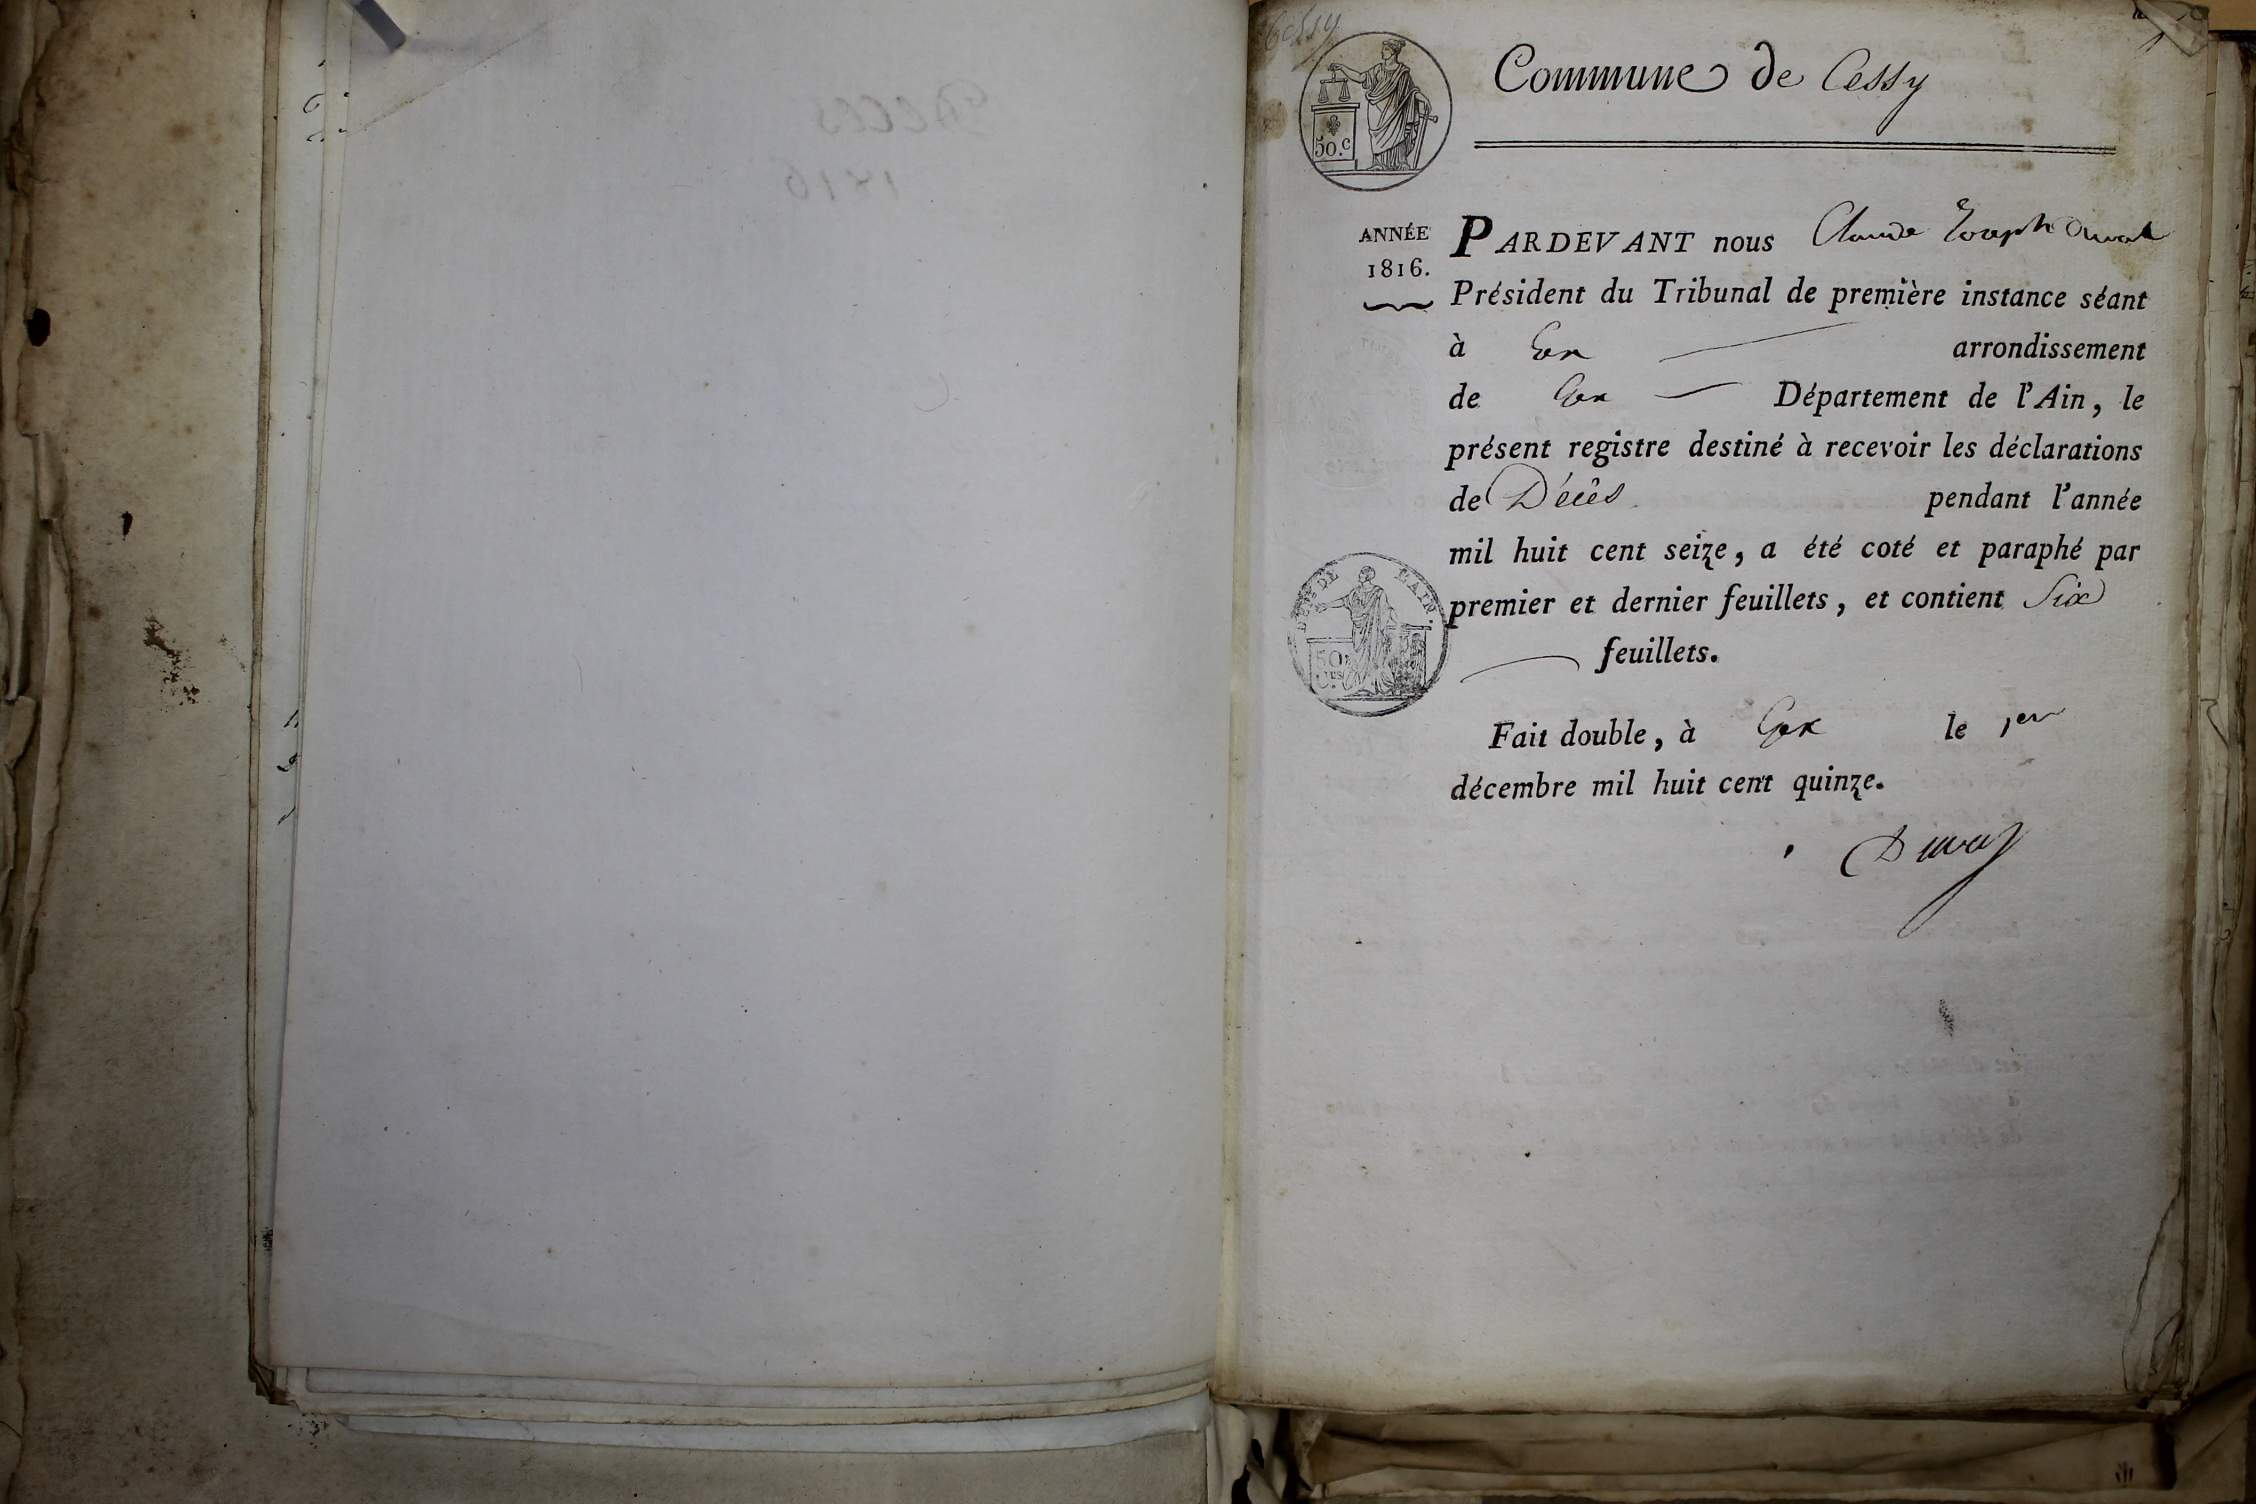 Cessy
Commune de Cessy
50.c
ANNÉE
1816.
PARDEVANT nous Claude Joseph Duval
Président du Tribunal de première instance séant
à Gex arrondissement
de Gex Département de l'Ain, le
présent registre destiné à recevoir les déclarations
de Décès pendant l'année
mil huit cent seize, a été coté et paraphé par
premier et dernier feuillets, et contient Six
feuillets.
DE L'AIN.
50
Fait double, à Gex le 1er
décembre mil huit cent quinze.
Duval